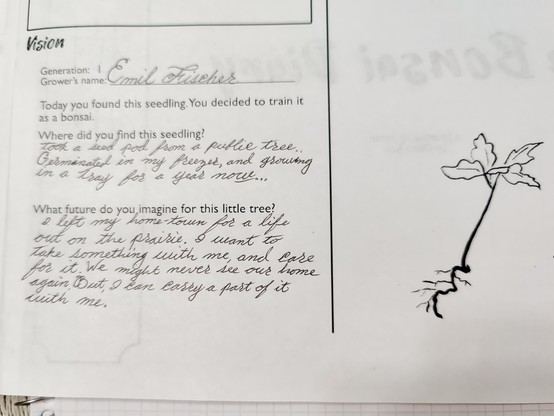 Vision
Generation: 1
Grower's name: Emil Fischer
Today you found this seedling. You decided to train it
as a bonsai.
Where did you find this seedling?
took a seed pod from a public tree..
Germinated in my freezer, and growing
in a tray for a year now...
What future do you imagine for this little tree?
I left my home-town for a life
out on the prairie. I want to
take something with me, and care
for it. We might never see our home
again. But, I can carry a part of it
with me.
Bonsai Diary